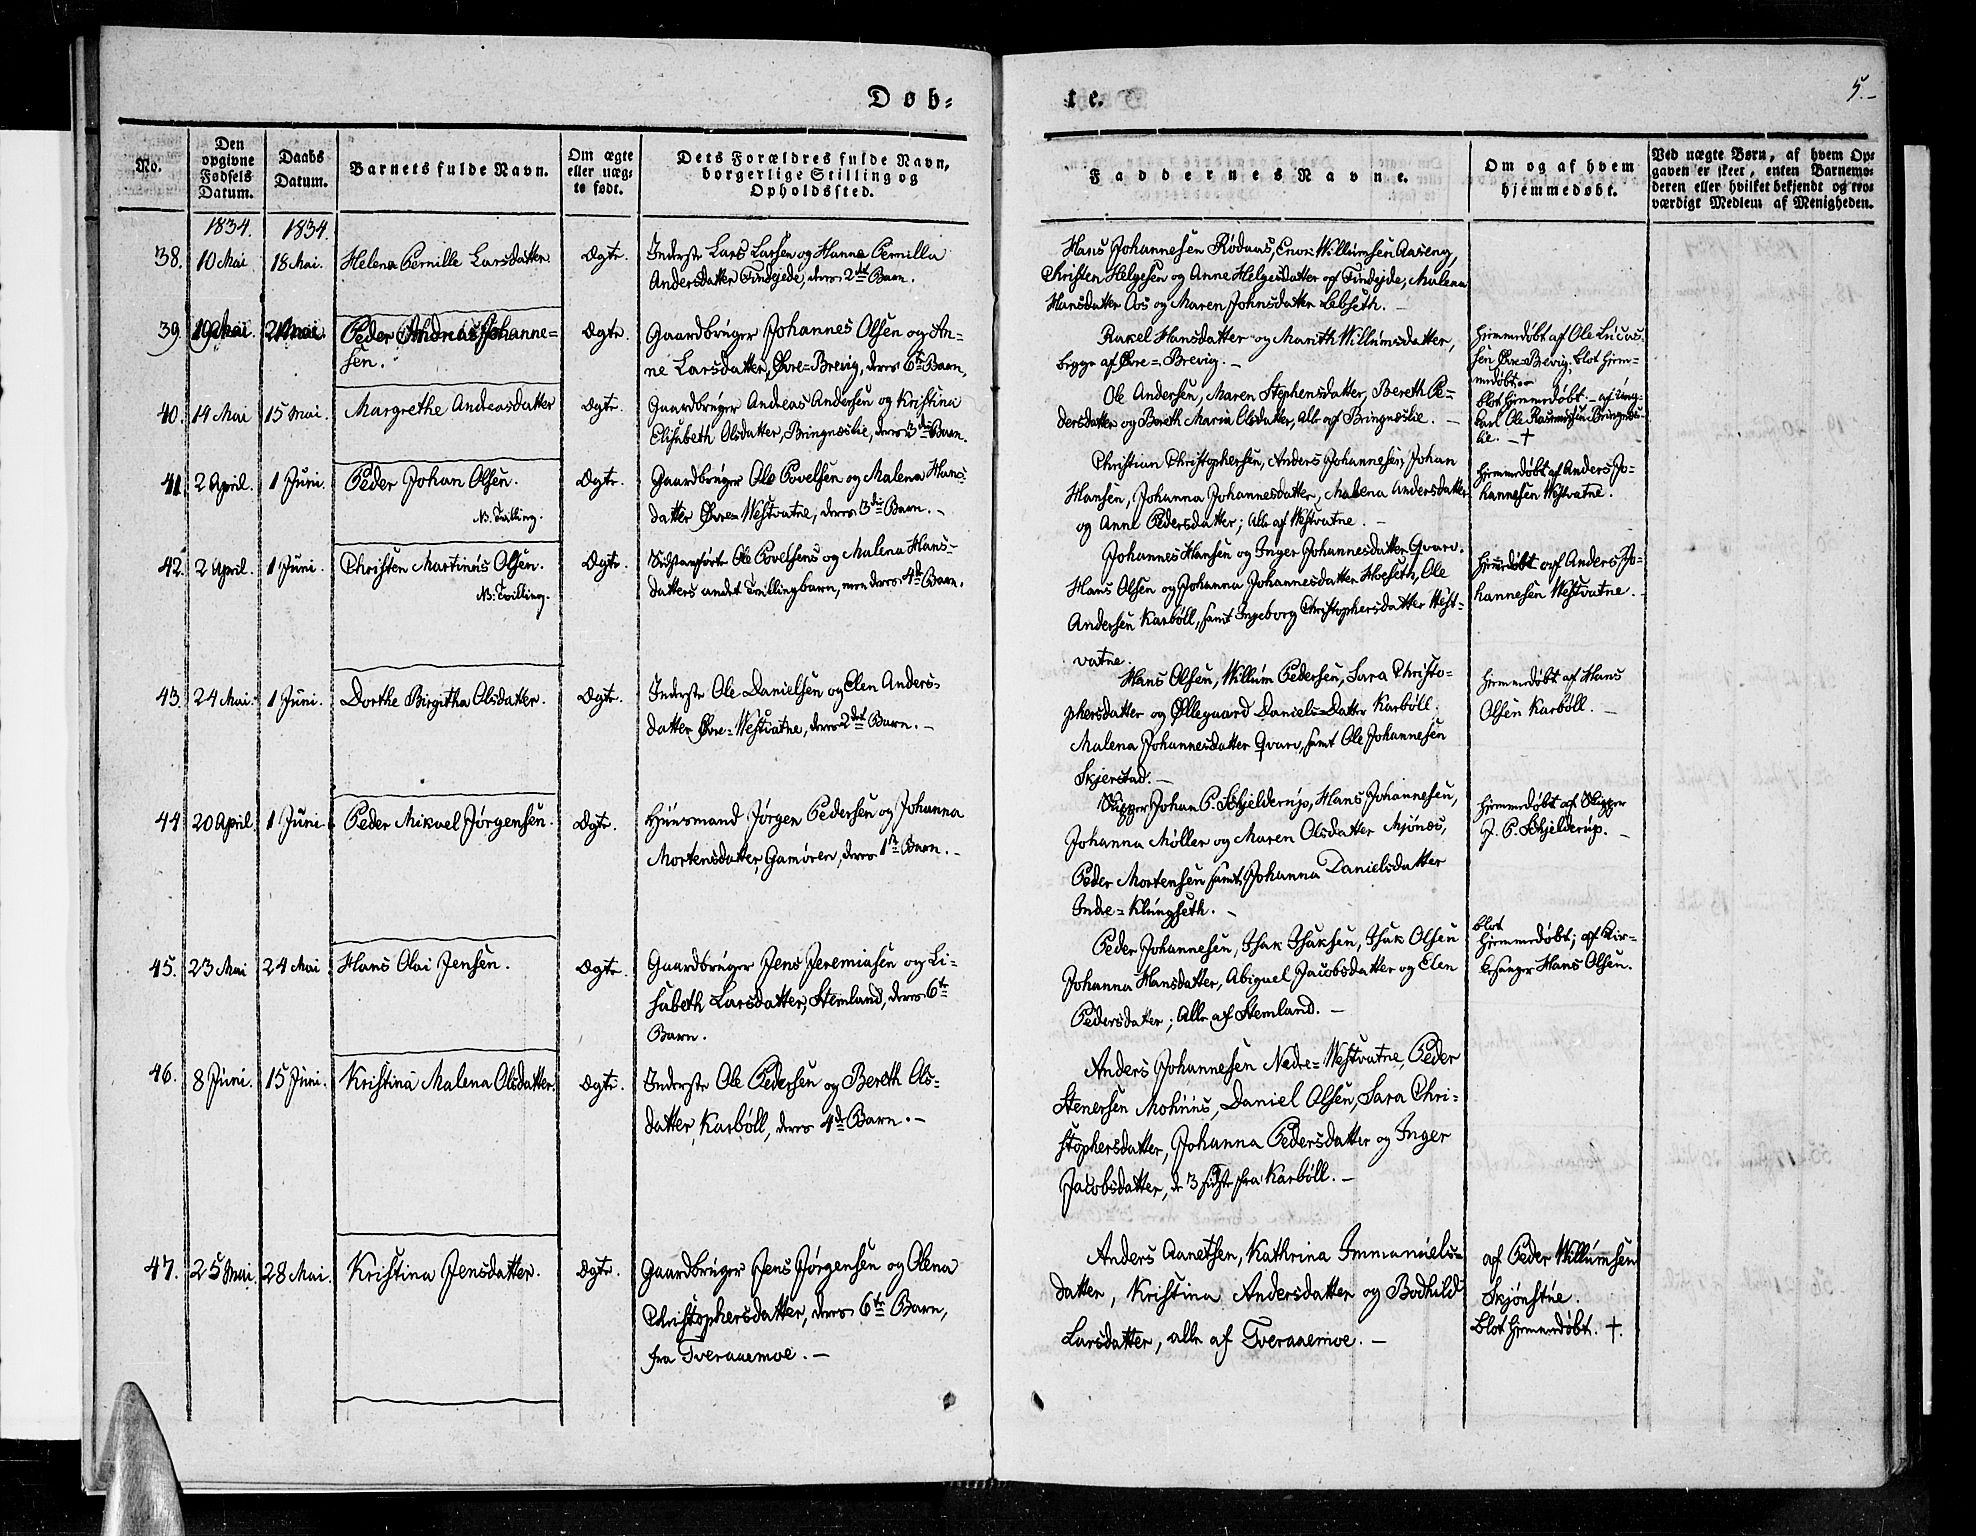 Døb-
No.
Den
opgivne
Fødsels
Datum.
Daabs
Datum.
Barnets fulde Navn.
Om ægte
eller uæg-
te født.
Dets Forældres fulde Navn,
borgerlige Stilling og
Opholdssted.
1834. 1834.
38. 10 Mai 18 Mai. Helena Pernille Larsdatter Ægte. Inderste Lars Larsen og Hanna Pernilla
Andersdatter Findøjde, deres 2det Barn.
39. 19 Mai 21 Mai Peder Andreas Johanne-
sen.
Ægte. Gaardbruger Johannes Olsen og An-
ne Larsdatter, Øvre-Brevig, deres 6te Barn.
40. 14 Mai 15 Mai. Margrethe Andreasdatter Ægte. Gaardbruger Andreas Andersen og Kristina
Elisabeth Olsdatter, Bringneslie, deres 3die Barn.
41. 2 April. 1 Juni. Peder Johan Olsen.
NB. Tvilling.
Ægte. Gaardbruger Ole Povelsen og Malena Hans-
datter Øvre-Westvatne, deres 3die Barn. -
42. 2 April. 1 Juni. Christen Martinus Olsen.
NB. Tvilling.
Ægte. Sidstanførte Ole Povelsens og Malena Hans-
datters andet Tvillingbarn, men deres 4de Barn.
43. 24 Mai. 1 Juni. Dorthe Birgitha Olsdatter. Ægte. Inderste Ole Danielsen og Elen Anders-
datter Øvre-Westvatne, deres 2det Barn. -
44. 20 April. 1 Juni. Peder Mikael Jørgensen. Ægte. Huusmand Jørgen Pedersen og Johanna
Mortensdatter, Gamøren, deres 1ste Barn. -
45. 23 Mai 24 Mai Hans Olai Jensen. Ægte. Gaardbruger Jens Jeremiasen og Li-
sabeth Larsdatter, Stemland, deres 6te
Barn.
46. 8 Juni. 15 Juni. Kristina Malena Olsdatter. Ægte. Inderste Ole Pedersen og Bereth Ols-
datter, Karbøll, deres 4de Barn. -
47. 25 Mai. 28 Mai. Kristina Jensdatter. Ægte. Gaardbruger Jens Jørgensen og Olena
Christophersdatter, deres 6te Barn,
fra Tveraaemoe. -
te.
5.-
Faddernes Navne.
Om og af hvem
hjemmedøbt.
Ved uægte Børn, af hvem Op-
gaven er skeet, enten Barnemo-
deren eller hvilket bekjendt og tro-
værdigt Medlem af Menigheden.
Hans Johannesen Rødaas, Enok Willumsen Aaseng,
Christen Helgesen og Anne Helgesdatter af Findøjde, Malena
Hansdatter Aas og Maren Johnsdatter Lebseth. -
Rakel Hansdatter og Marith Willumsdatter,
begge af Øvre-Brevig. -
Hjemmedøbt af Ole Lucas-
sen Øvre-Brevig; blot hjem-
medøbt.
Ole Andersen, Maren Stephensdatter, Bereth Pe-
dersdatter og Bereth Maria Olsdatter, Alle af Bringneslie. -
blot hjemmedøbt. - af Ung-
karl Ole Rasmussen Bringnes-
lie. - †
Christian Christophersen, Anders Johannesen, Johan
Hansen, Johanna Johannesdatter, Malena Andersdatter
og Anne Pedersdatter; Alle af Westvatne. -
hjemmedøbt af Anders Jo-
hannesen Westvatne.
Johannes Hansen og Inger Johannesdatter Qvarv.
Hans Olsen og Johanna Johannesdatter Hoeseth, Ole
Andersen Karbøll, samt Ingeborg Christophersdatter West-
vatne.
hjemmedøbt af Anders Jo-
hannesen Westvatne. -
Hans Olsen, Willum Pedersen, Sara Christo-
phersdatter og Øllegaard Daniels-Datter Karbøll.
Malena Johannesdatter Qvarv, samt Ole Johannesen
Skjerstad. -
hjemmedøbt af Hans
Olsen Karbøll. -
Skipper Johan P. Schjelderup, Hans Johannesen,
Johanna Møller og Maren Olsdatter Mjønes,
Peder Mortensen samt Johanna Danielsdatter
Indre-Klungseth. -
hjemmedøbt af Skipper
J. P. Schjelderup. -
Peder Johannesen, Isak Isaksen, Isak Olsen
Johanna Hansdatter, Abigael Jacobsdatter og Elen
Pedersdatter; Alle af Stemland. -
blot
hjemmedøbt; af Kir-
kesanger Hans Olsen.
Anders Johannesen Nedre-Westvatne, Peder
Stenersen Mohuus, Daniel Olsen, Sara Chri-
stophersdatter, Johanna Pedersdatter og Inger
Jacobsdatter, de 3 sidste fra Karbøll. -
Anders Aanetsen, Kathrina Immanuels-
datter, Kristina Andersdatter og Bodhild
Larsdatter, alle af Tveraaemoe. -
af Peder Willumsen
Skjønstue.
blot hjemmedøbt. †.